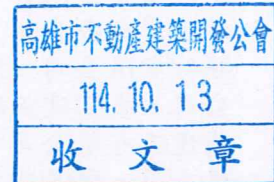 高雄市不動產建築開發公會
114. 10. 13
收文章